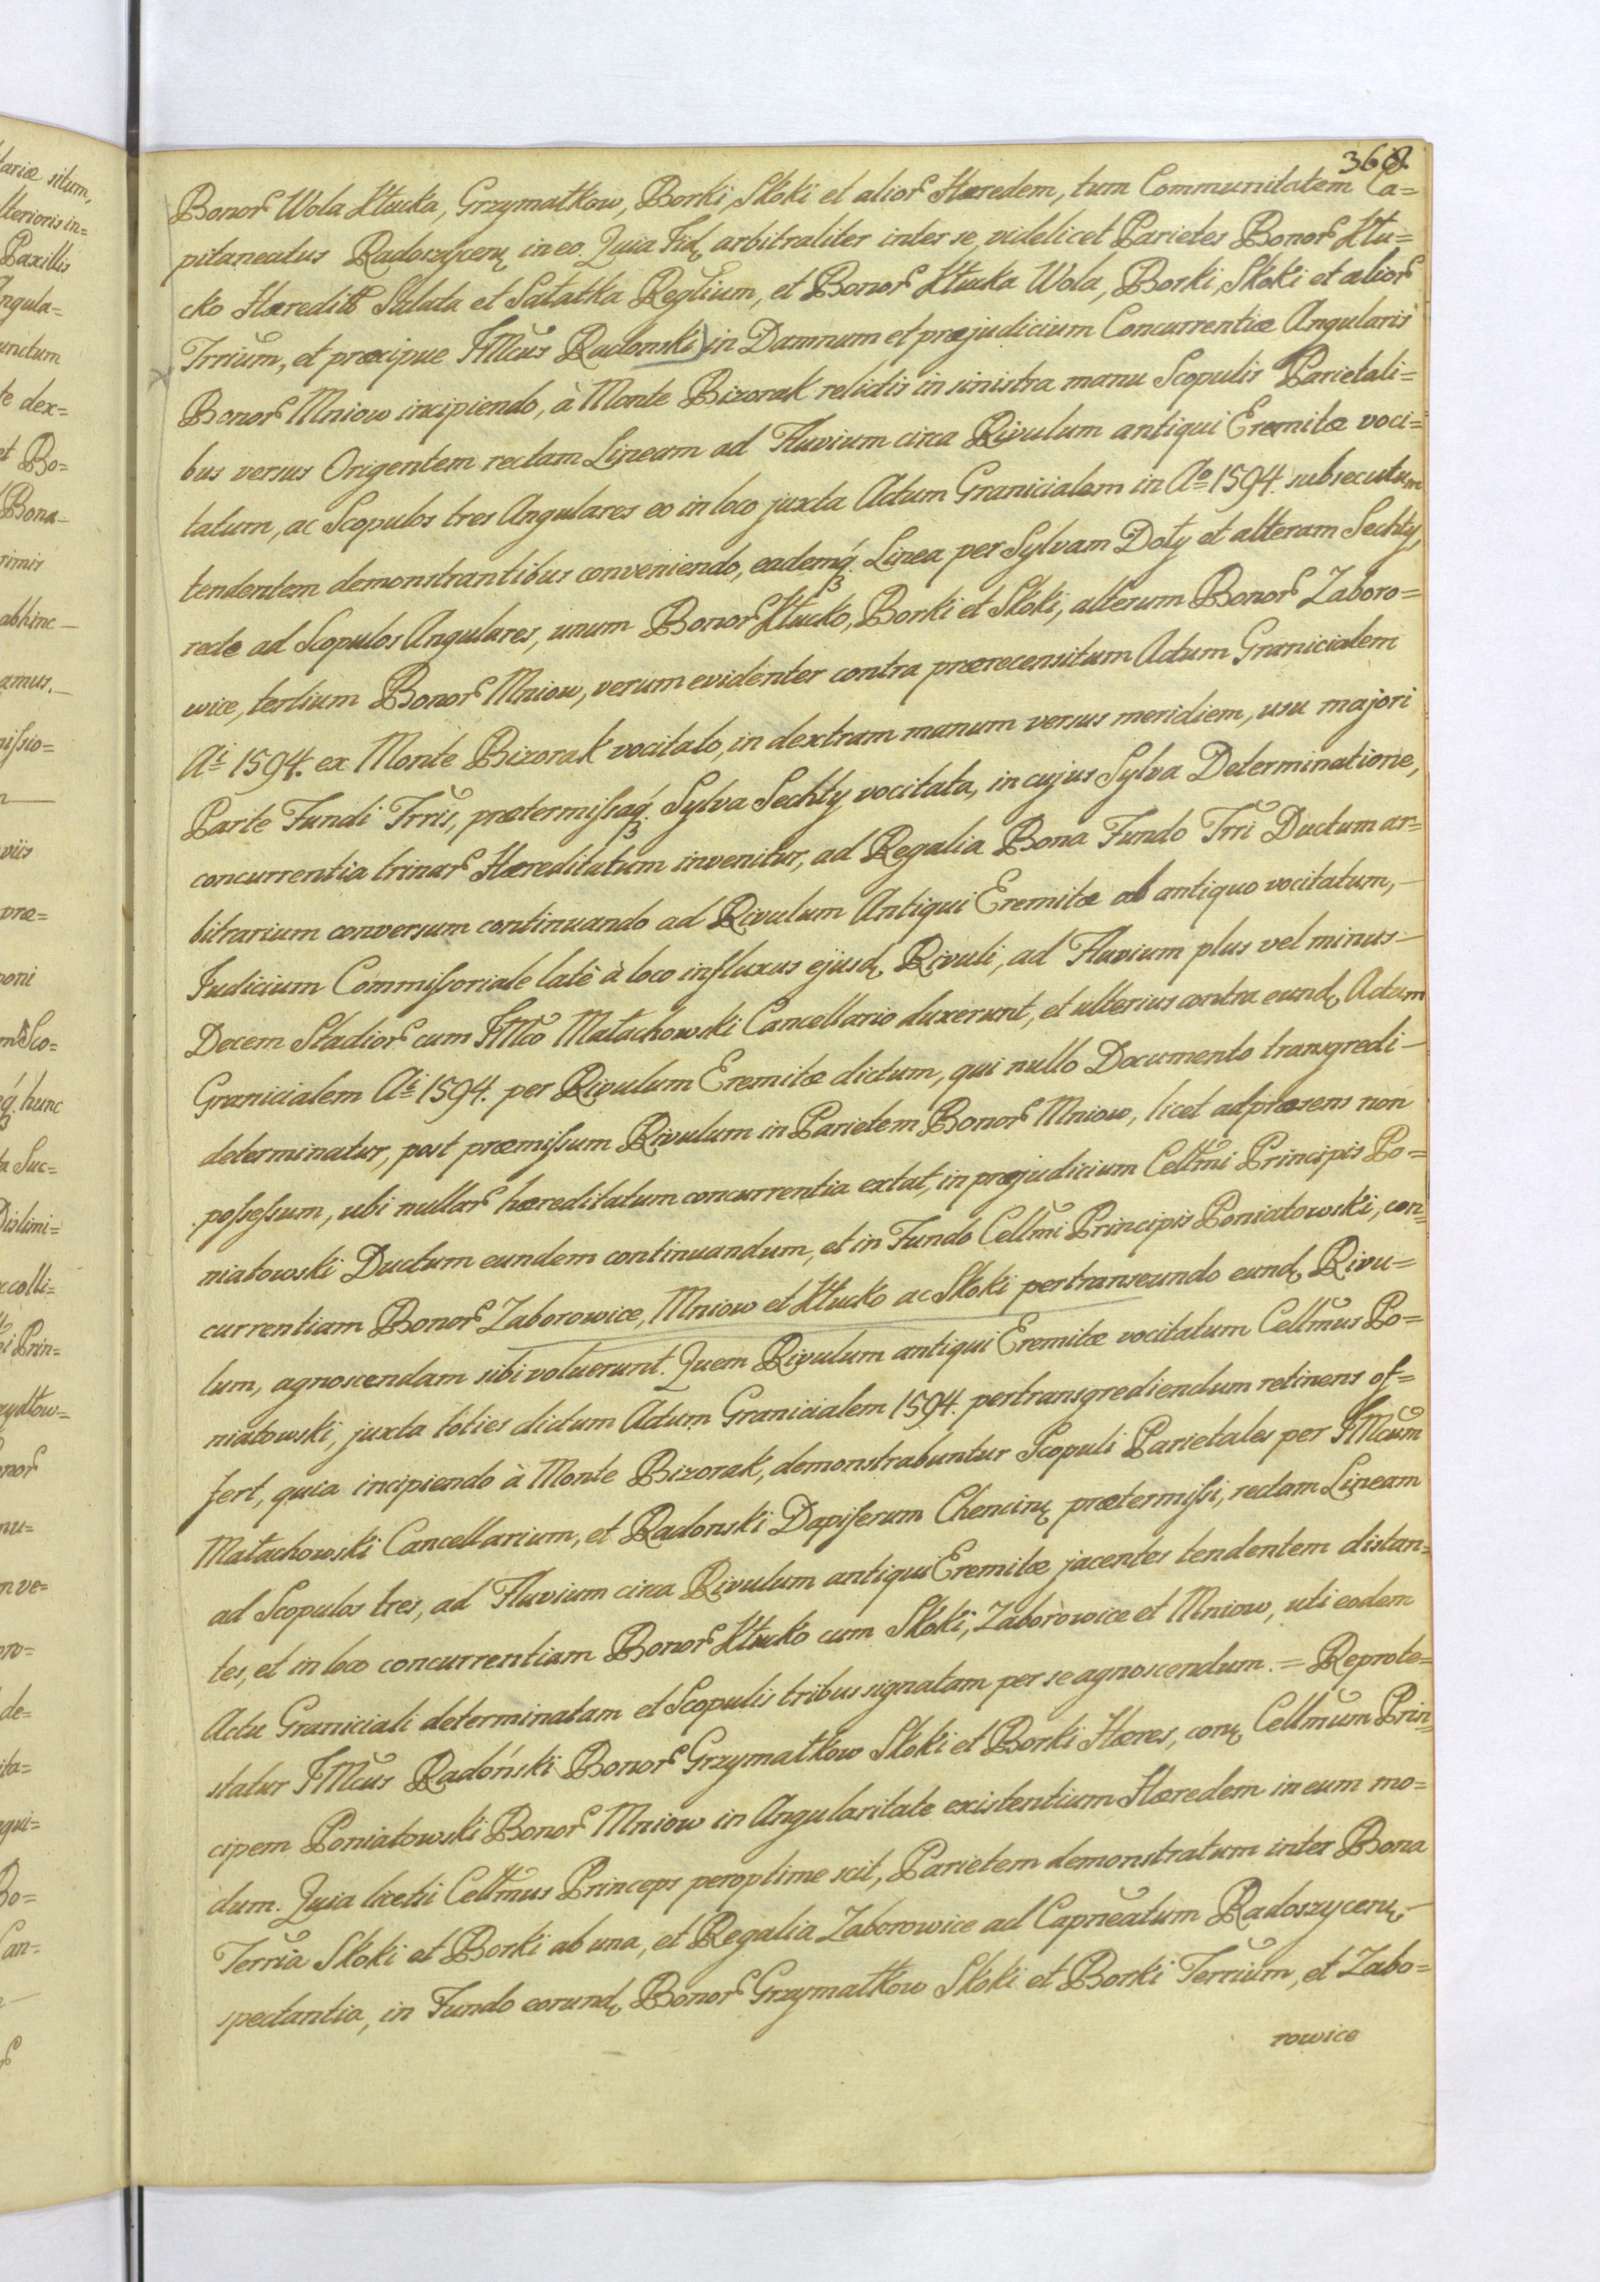 368.
Bonor Wola Kłucka, Grzymałkow, Borki, Skoki et alior Hæredem, tum Communitatem Ca=
pitaneatus Radoszycen in eo. Quia Iid arbitraliter inter se, videlicet Parietes Bonor Kłu=
cko Hæredit Saluta et Sałatka Reglium, et Bonor Kłucka Wola, Borki, Skoki et alior
Trrium, et præcipue IMcus Radonski in Damnum et præjudicium Concurrentiæ Angularis
Bonor Mniow incipiendo, à Monte Bizorak relictis in sinistra manu Scopulis Parietali=
bus versus Origentem rectam Lineam ad Fluvium circa Rivulum antiqui Eremitæ voci=
tatum, ac Scopulos tres Angulares eo in loco juxta Actum Granicialem in Ao 1594. subsecutum
tendentem demonstrantibus conveniendo, eademq Linea per Sylvam Doły et alteram Sechły,
recte ad Scopulos Angulares, unum Bonor Kłucko, Borki et Skoki, alterum Bonor Zaboro=
wice, tertium Bonor Mniow, verum evidenter contra prærecensitum Actum Granicialem
Ai 1594. ex Monte Bizorak vocitato, in dextram manum versus meridiem, usu majori
Parte Fundi Trris, prætermissaq Sylva Sechły vocitata, in cujus Sylva Determinatione,
concurrentia trinar Hæreditatum invenitur, ad Regalia Bona Fundo Trri Ductum ar=
bitrarium conversum continuando ad Rivulum Antiqui Eremitæ ab antiquo vocitatum,
Judicium Commissoriale latè à loco influxus ejusd Rivuli, ad Fluvium plus vel minus
Decem Stadior cum IMco Małachowski Cancellario duxerunt, et ulterius contra eund Actum
Granicialem Ai 1594. per Rivulum Eremitæ dictum, qui nullo Documento transgredi
determinatur, post præmissum Rivulum in Parietem Bonor Mniow, licet ad præsens non
possessum, ubi nullar hæreditatum concurrentia extat, in præjudicium Cellmi Principis Po=
niatowski Ductum eundem continuandum, et in Fundo Cellmi Principis Poniatowski, con=
currentiam Bonor Zaborowice, Mniow et Kłucko ac Skoki pertranseundo eund Rivu=
lum, agnoscendam sibi voluerunt. Quem Rivulum antiqui Eremitæ vocitatum Cellmus Po=
niatowski, juxta toties dictum Actum Granicialem 1594. pertransgrediendum retinens of=
fert, quia incipiendo à Monte Bizorak, demonstrabuntur Scopuli Parietales per IMcum
Małachowski Cancellarium, et Radonski Dapiferum Chencin prætermissi, rectam Lineam
ad Scopulos tres, ad Fluvium circa Rivulum antiqui Eremitæ jacentes tendentem distan=
tes, et in loco concurrentiam Bonor Kłucko cum Skoki, Zaborowice et Mniow, uti eodem
Actu Graniciali determinatam et Scopulis tribus signatam per se agnoscendum. = Reprote=
statur IMcus Radoński Bonor Grzymałkow Skoki et Borki Hæres, con Cellmum Prin=
cipem Poniatowski Bonor Mniow in Angularitate existentium Hæredem in eum mo=
dum. Quia licetii Cellmus Princeps peroptime scit, Parietem demonstratum inter Bona
Terria Skoki et Borki ab una, et Regalia Zaborowice ad Capneatum Radoszycen
spectantia, in Fundo eorund Bonor Grzymałkow Skoki et Borki Terrium, et Zabo=
rowice